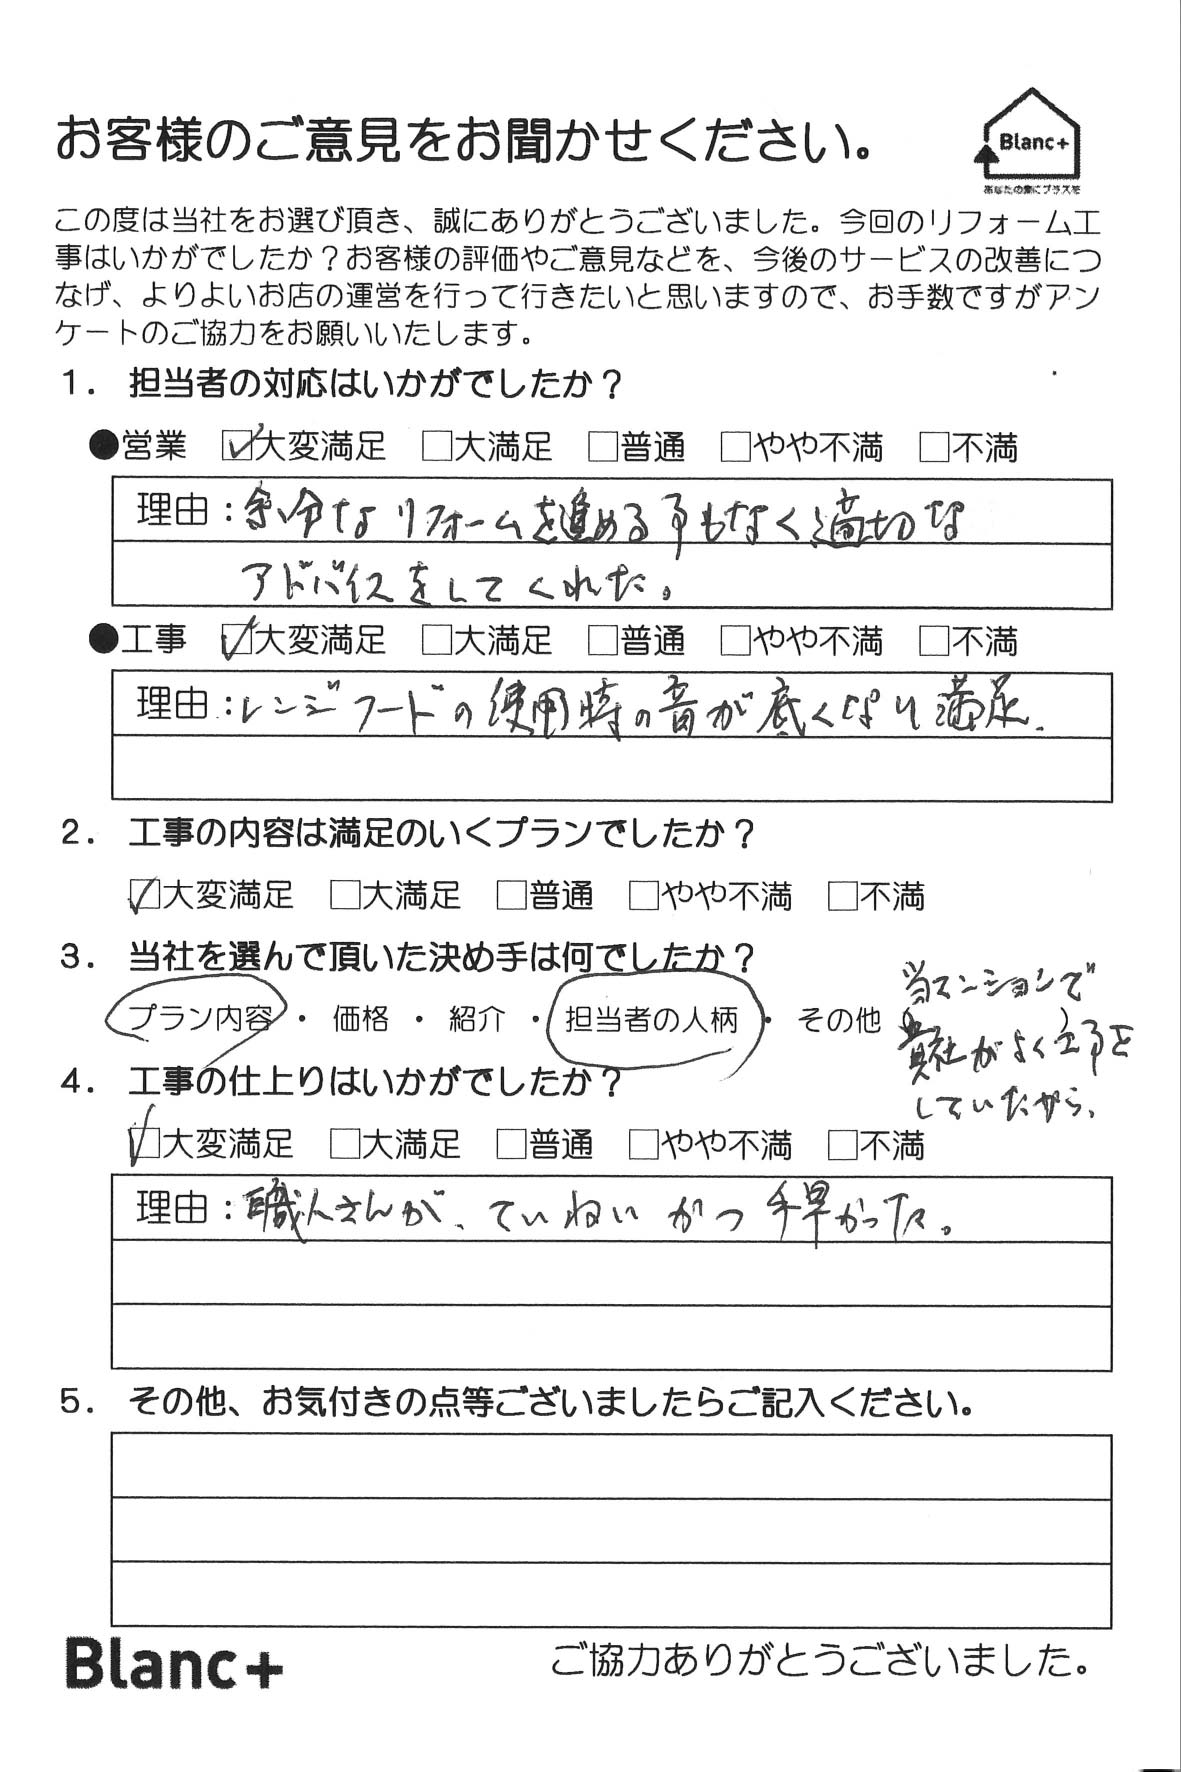 お客様のご意見をお聞かせください。
Blanc+
あなたの家にプラスを
この度は当社をお選び頂き、誠にありがとうございました。今回のリフォーム工
事はいかがでしたか？お客様の評価やご意見などを、今後のサービスの改善につ
なげ、よりよいお店の運営を行って行きたいと思いますので、お手数ですがアン
ケートのご協力をお願いいたします。
１． 担当者の対応はいかがでしたか？
●営業 ☑大変満足 □大満足 □普通 □やや不満 □不満
理由：余分なリフォームを進める事もなく適切な
アドバイスをしてくれた。
●工事 ☑大変満足 □大満足 □普通 □やや不満 □不満
理由：レンジフードの使用時の音が底くなり満足.
２． 工事の内容は満足のいくプランでしたか？
☑大変満足 □大満足 □普通 □やや不満 □不満
３． 当社を選んで頂いた決め手は何でしたか？
プラン内容 ・ 価格 ・ 紹介 ・ 担当者の人柄 ・ その他（ ）
当マンションで
貴社がよく工事を
していたから、
４． 工事の仕上りはいかがでしたか？
☑大変満足 □大満足 □普通 □やや不満 □不満
理由：職人さんが、ていねいかつ手早かった。
５． その他、お気付きの点等ございましたらご記入ください。
Blanc+
ご協力ありがとうございました。